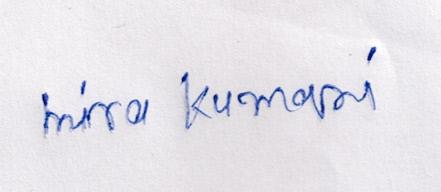 mira Kumari